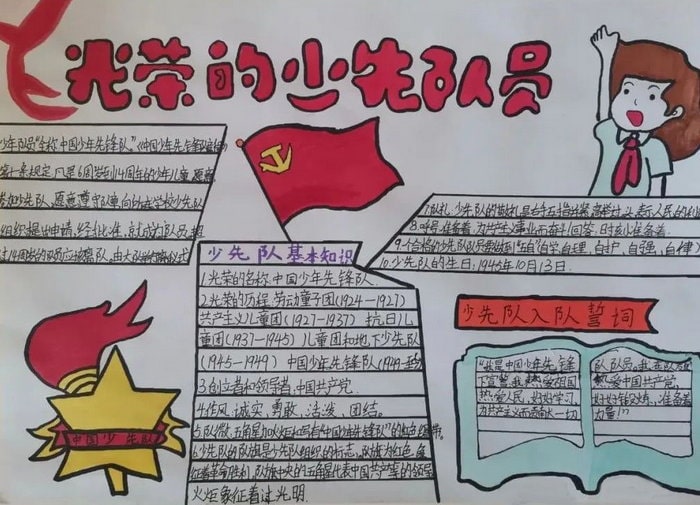 光荣的少先队员
少年队员"全称中国少年先锋队"《中国少年先锋队章程》
第十条规定,凡是6周岁到14周岁的少年儿童,愿意
参加少先队,愿意遵守队章,向所在学校少先队
组织提出申请,经批准,就成为队员,超
过14周岁的队员应该离队,由大队举行离队仪式
少先队基本知识
1.光荣的名称,中国少年先锋队.
2.光荣的历程,劳动童子团(1924—1927)
共产主义儿童团(1927-1937) 抗日儿
童团(1937-1945)儿童团和地下少先队
(1945—1949) 中国少年先锋队(1949-至今)
3.创立者和领导者,中国共产党.
4.作风,诚实、勇敢、活泼、团结。
5.队徽,五角星加火炬和写有"中国少年先锋队"的红色绶带。
6.少先队的队旗是少先队组织的标志,队旗为红色,象
征着革命胜利,队旗中央的五角星代表中国共产党的领导
火炬象征着光明.
7.队礼,少先队的敬礼是右手五指并拢,高举过头,表示人民的利
8.呼号,准备着,为共产主义事业而奋斗!回答,时刻准备着.
9.个合格的少先队队员要做到"五自"自学,自理,自护,自强,自律)
10.少先队的生日,1945年10月13日.
少先队入队誓词
"我是中国少年先锋
下宣誓,我热爱祖国
热爱人民,好好学习
为共产主义而贡献一切
队队员。我在队旗
热爱中国共产党,
好好锻炼,准备着
力量!"
中国少先队